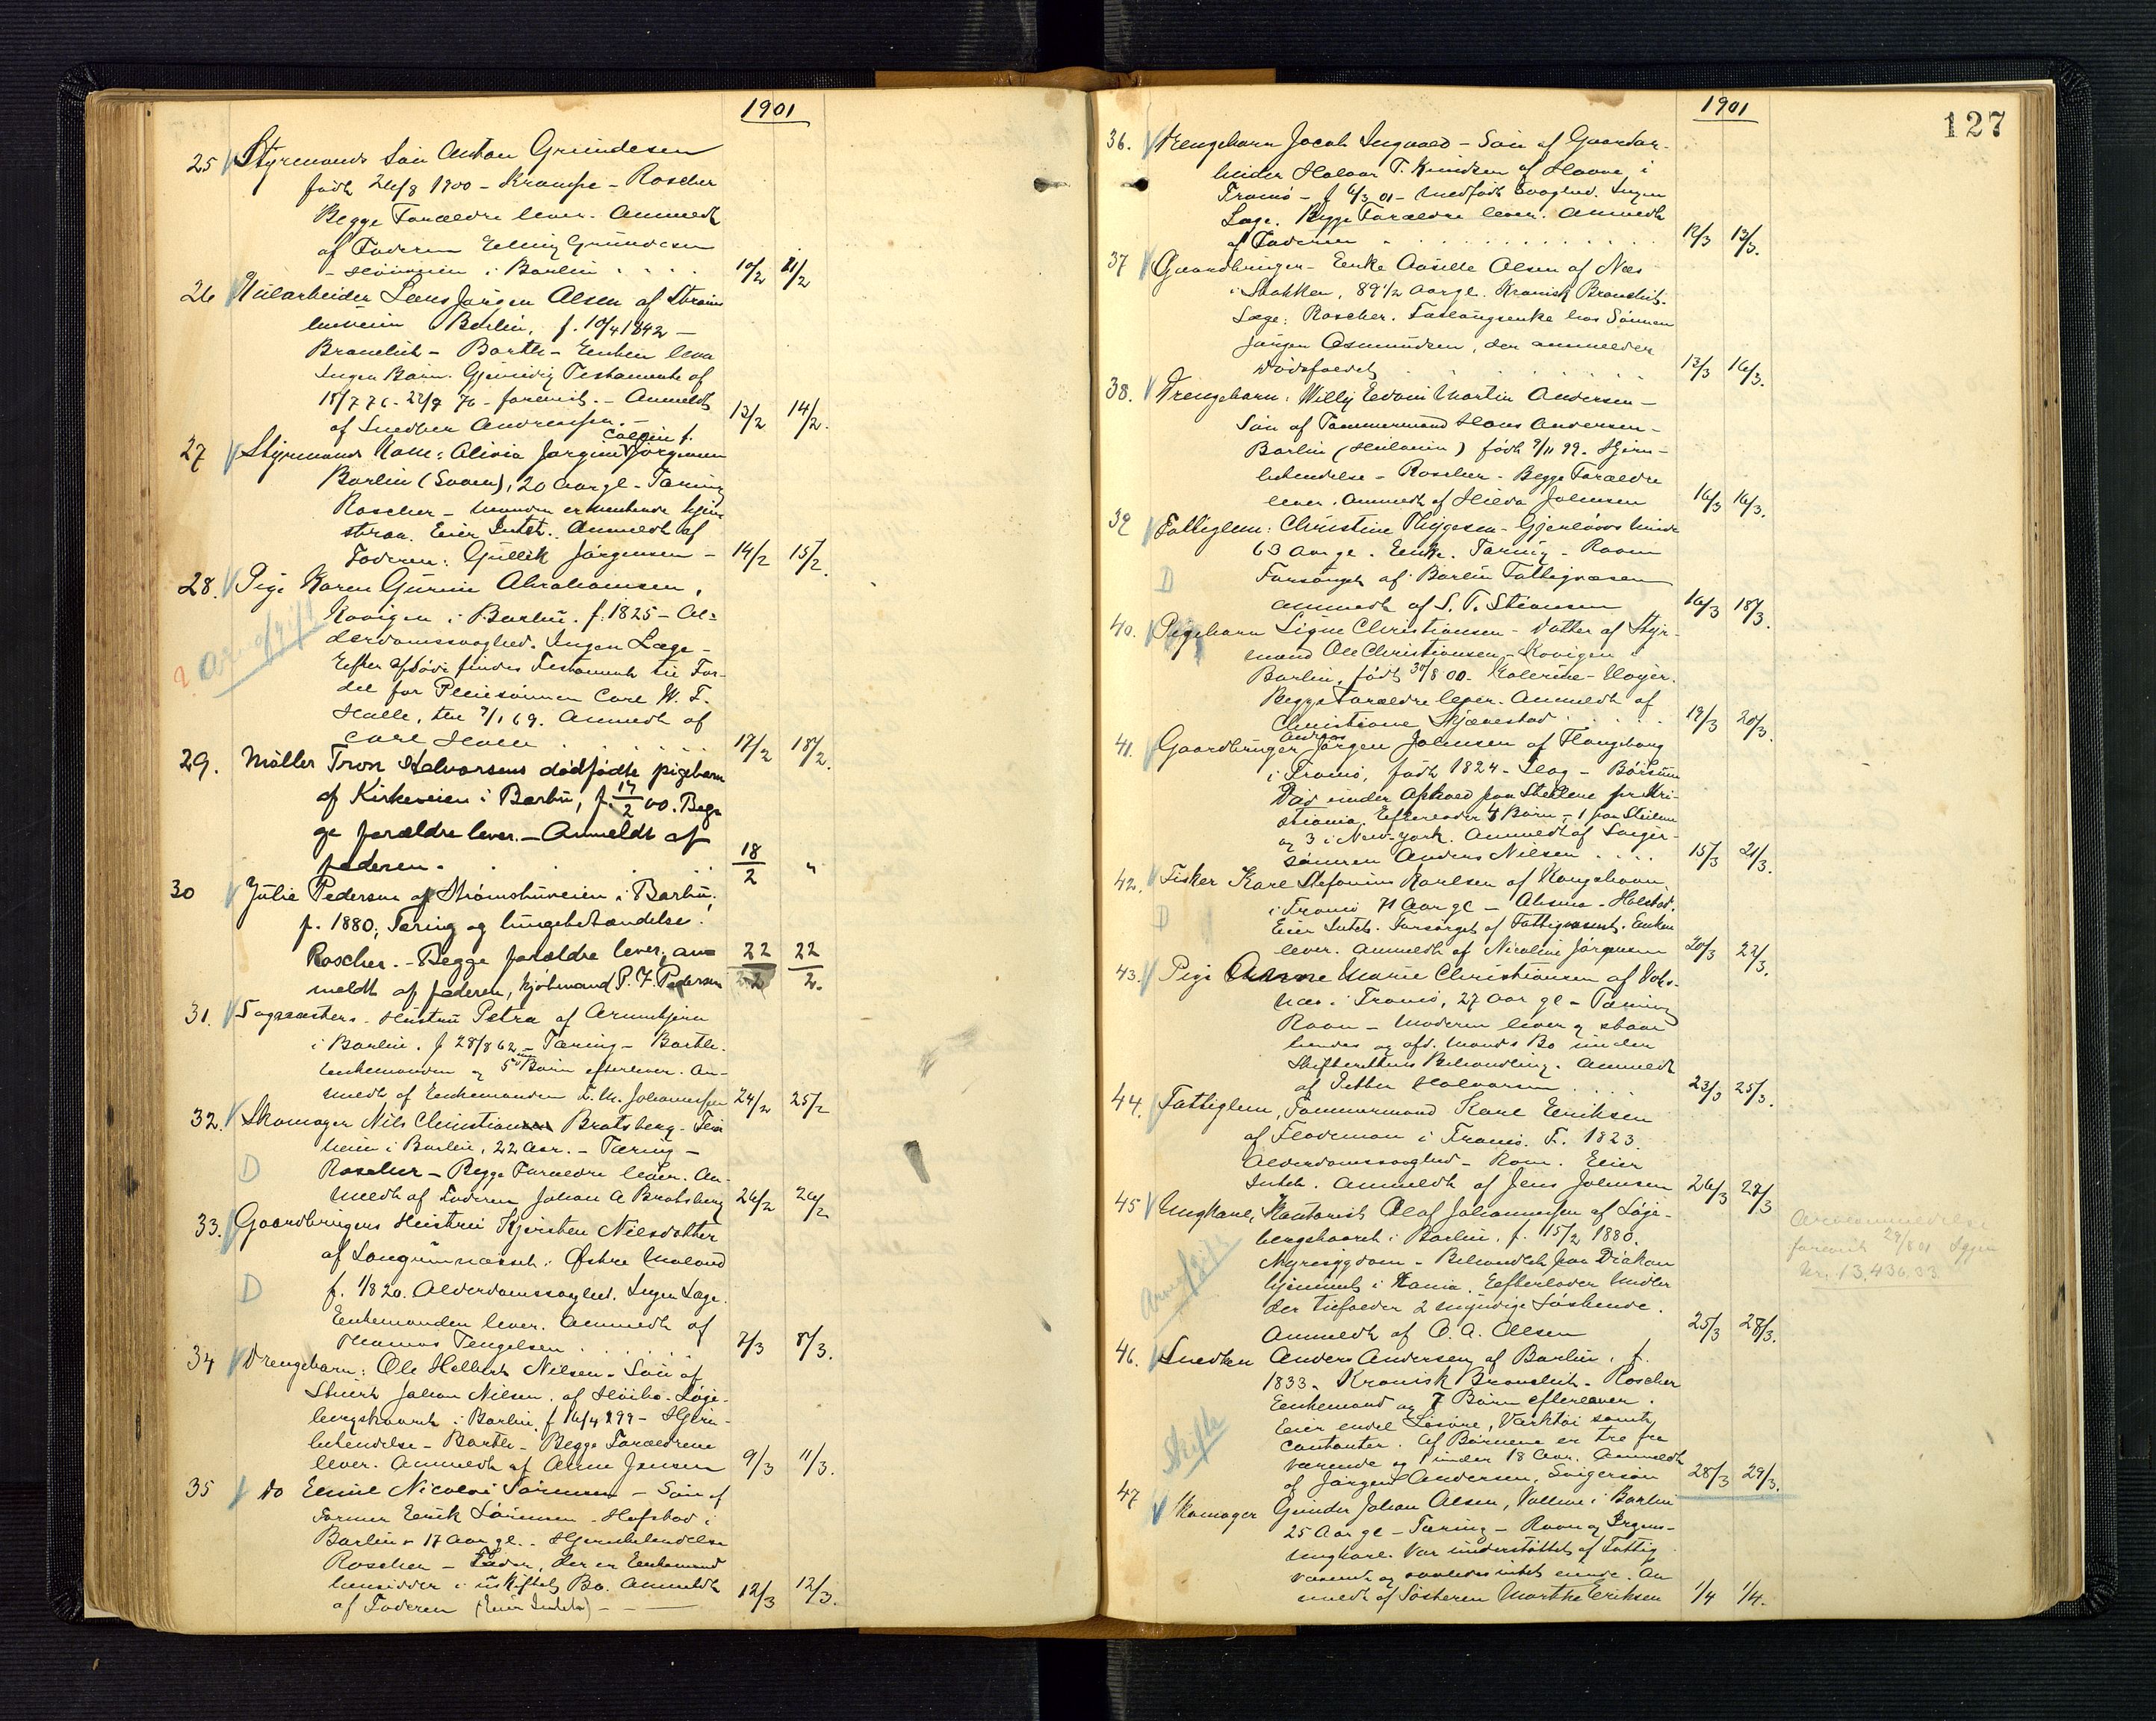 1901
25 Styrmands Søn Anton Grundesen
født 24/8 1900 - Krampe - Roscher
Begge Forældre lever. Anmeldt
af Faderen Elling Grundesen
i Barbu 10/2 11/2
26 Lars Jørgen Olsen af Strøms-
busveien Barbu, f. 10/4 1842 -
Bronchit - Barth - Enken lever
Ingen Børn. Gjensidig Testamente af
15/7 76 - 22/9 76 - forevist. - Anmeldt
af Snedker Andersen. 13/2 14/2.
27 Styrmands Kone: Olivia Jørgine Jørgensen
Barbu (Songe), 20 Aar gl - Tæring
Roscher - Manden er ventende hjem
straa. Eier Intet. Anmeldt af
Faderen: Gullik Jørgensen - 14/2 15/2.
28. Pige Karen Gurine Abrahamsen,
Kovigen i Barbu. f. 1825 - Al-
derdomssvaghed. Ingen Læge -
Efter Afdøde findes Testamente til For-
del for Pleiesønnen Carl W. T.
Halle, den 7/1 69. Anmeldt af
Carl Halle 17/2 18/2.
? Arvafgift
29. Møller Tron Halvorsens dødfødte pigebarn
af Kirkeveien i Barbu, f. 17/2 00. Beg-
ge forældre lever. - Anmeldt af
faderen. 18/2 "
30 Julie Pedersen af Strømsbuveien i Barbu,
f. 1880, Tæring og lungebetændelse.
Roscher. - Begge forældre lever, an-
meldt af faderen, kjøbmand P. F. Pedersen 22/2 22/2.
31. Sagmesters Hustru Petra af
i Barbu. f 28/8 62 - Tæring - Barth.
Enkemanden og 5 Børn efterlever. An-
meldt af Enkemanden L. M. Johannessen 24/2 25/2
32. Skomager Nils Christian Bratsberg -
heim i Barbu, 22 Aar. - Tæring -
D Roscher - Begge Forældre lever. An-
meldt af Faderen Johan A Bratsberg 26/2 26/2
33. Gaardbrugers Hustru Kjersten Nilsdatter
af Langumnæsset i Østre Moland
D f. 1820. Alderdomssvaghed. Ingen Læge.
Enkemanden lever. Anmeldt af
Thomas Tengelsen 7/3 8/3.
34 Drengebarn: Ole Helbert Nilsen. Søn af
Stuert Johan Nilsen, af Høibo. Løge-
bergskaaret i Barbu, f 16/4 1899 - Hjerne-
betændelse - Barth - Begge Forældrene
lever. Anmeldt af Anne Jensen 9/3 11/3.
35 Do Emil Nicolai Sørensen - Søn af
Former Eerik Sørensen - Hofstad i
Barbu - 17 Aar gl. - Hjernebetændelse
Roscher - Fader, der er Enkemand
hensidder i uskiftet Bo. Anmeldt
af Faderen (Eier Intet) - 12/3 12/3.
1901
127
36. Drengebarn Jacob Ingvald - Søn af Gaardar-
beider Halvor T. Knudsen af Hove i
Tromø - f 6/3 01 - Medfødt Svaghed. Ingen
Læge. Begge Forældre lever. Anmeldt
af Faderen 12/3 13/3.
37 Gaardbruger - Enke Aasille Olsen af Næs
i Stokken, 89 1/2 Aar gl. Kronisk Bronchit.
Læge: Roscher. Føderaadsenke hos Sønnen
Jørgen Osmundsen, der anmelder
Dødsfaldet 13/3 16/3.
38. Drengebarn: Willy Edvin Martin Andersen -
Søn af Tømmermand Hans Andersen -
Barbu () født 9/11 99. Hjerne-
betændelse - Roscher - Begge Forældre
lever. Anmeldt af Hilda Johnsen 16/3 16/3.
39 Fattiglem: Christine Thygesen - Gjerløvs Minde
63 Aar gl. Enke. Tæring - Roem
D Forsørget af Barbu Fattigvæsen
Anmeldt af S. T. Stiansen 16/3 18/3.
40. Pigebarn Signe Christiansen - Datter af Styr-
mand Ole Christiansen - Kovigen i
Barbu, født 30/8 00. Kolerine - Høyer.
Begge Forældre lever. Anmeldt af
Christiane Skjævestad 19/3 20/3.
41. Gaardbruger Andreas Jørgen Johnsen af Haugebong
i Tromø, født 1824 - Slag - Børsum
Død under Ophold paa Stedene pr Kri-
stiania. Efterlader 4 Børn - 1 paa Stedene
og 3 i New-York. Anmeldt af Sviger-
sønnen Anders Nilsen 15/3 21/3.
42. Fisker Karl Stefanius Karlsen af Kongshavn
i Tromø 71 Aar gl - Ahsma - Holstad.
D Eier Intet. Forsørget af Fattigvæsenet. Enken
lever. Anmeldt af Nicoline Jørgensen 20/3 22/3.
43. Pige Anne Marie Christiansen af
næs i Tromø, 27 Aar gl - Tæring
Roem - Moderen lever og staar
hendes og afd. Mands Bo under
Skifterettens Behandling. Anmeldt
af Petter Halvorsen 23/3 25/3.
44. Fattiglem, Tømmermand Karl Eriksen
af Flademoen i Tromø. F. 1823.
Alderdomssvaghed - Roem. Eier
Intet. Anmeldt af Jens Johnsen 26/3 27/3
45 Ungkarl, Kontorist Olaf Johannessen af Løge-
bergskaaret i Barbu, f. 15/2 1880.
Nyresygdom - Behandlet paa Diakon
hjemmet i Xania. Efterlader Midler
der tilfalder 2 umyndige Søskende.
Anmeldt af O. A. Olsen 25/3 28/3.
Arvafgift
Arveanmeldelse
forevist 29/6 01
Kr. 13,436.33
46. Snedker Anders Andersen af Barbu, f.
1833. Kronisk Bronchit - Roscher
Enkemand og 7 Børn efterlever.
Eier endel Løsøre, Værktøi samt
Contanter. Af Børnene er tre fra-
værende og 1 under 18 Aar. Anmeldt
af Jørgen Andersen, Svigersøn 28/3 29/3.
Skifte
47 Skomager Gunder Johan Olsen, Vollene i Barbu
25 Aar gl - Tæring - Roem og Irgens -
Ungkarl. Var understøttet af Fattig-
væsenet og saaledes intet eiende. An-
meldt af Søsteren Marthe Eriksen 1/4 1/4.